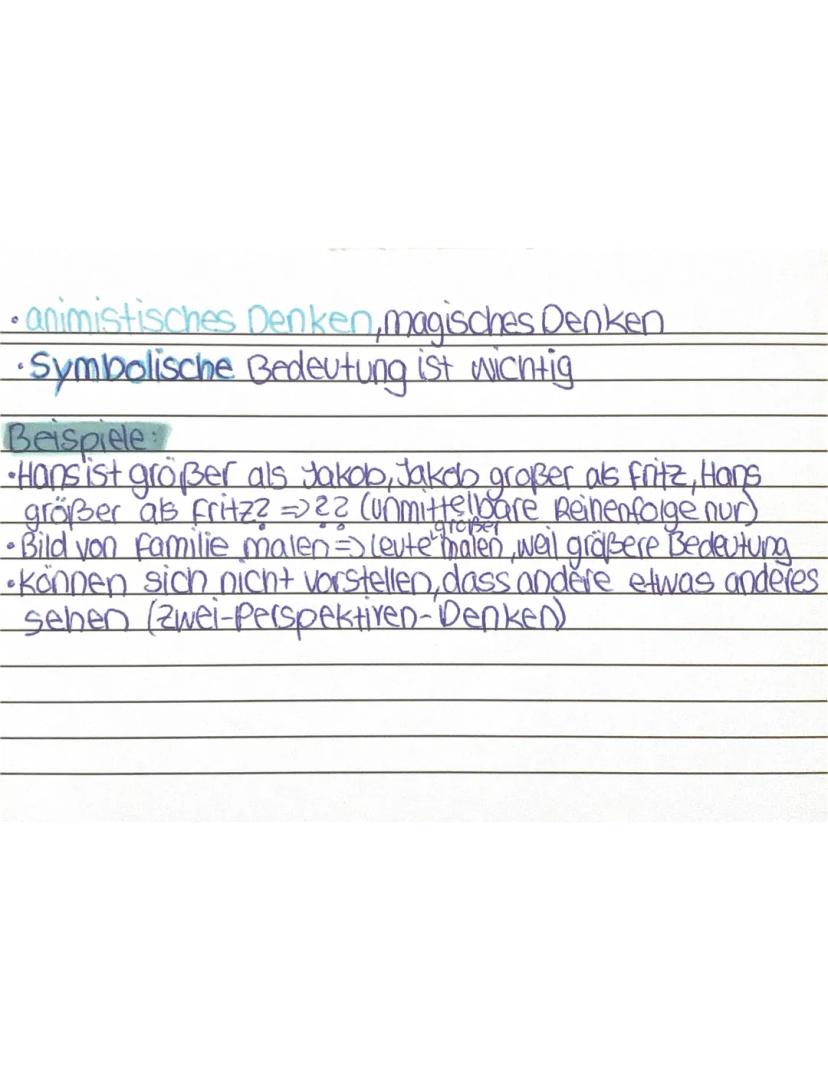 • animistisches Denken, magisches Denken
• Symbolische Bedeutung ist wichtig
Beispiele:
• Hans ist größer als Jakob, Jakob großer als Fritz, Hans
größer als Fritz? => ?? (unmittelbare Reihenfolge nur)
• Bild von Familie malen => Leute größer malen, weil größere Bedeutung
• können sich nicht vorstellen, dass andere etwas anderes
sehen (zwei-Perspektiven-Denken)